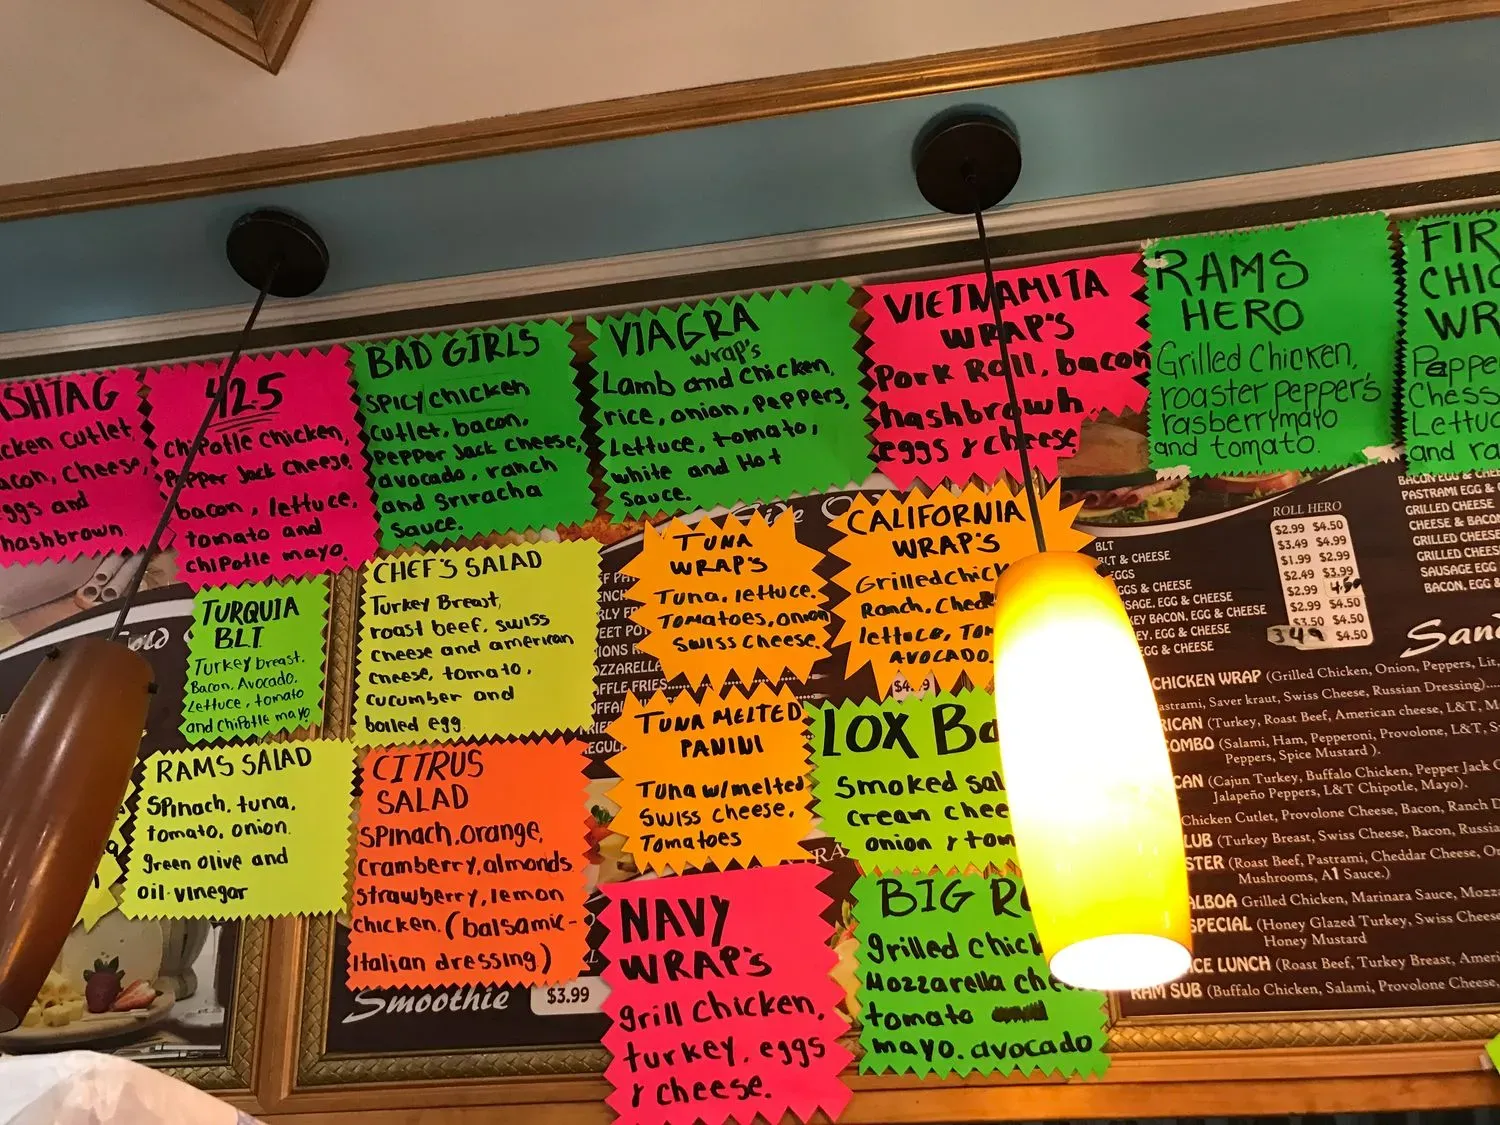 SHTAG
cken cutlet,
acon, cheese,
ggs and
hashbrown.
425
chipotle chicken,
Pepper Jack cheese,
bacon, lettuce,
tomato and
chipotle mayo.
BAD GIRLS
SPICY chicken
cutlet, bacon,
Pepper Jack cheese,
avocado, ranch
and Sriracha
Sauce.
VIAGRA
wrap's
Lamb and chicken,
rice, onion, Peppers,
Lettuce, tomato,
white and Hot
Sauce.
VIETNAMITA
WRAP'S
Pork Roll, bacon
hashbrowh
eggs & cheese
RAMS
HERO
Grilled Chicken,
roaster pepper's
rasberrymayo
and tomato.
FIR
CHIC
WR
Peppe
Chess
Lettuc
and ra
TURQUIA
BLT.
Turkey breast.
Bacon, Avocado,
Lettuce, tomato
and Chipotle mayo
CHEF'S SALAD
Turkey Breast,
roast beef, swiss
cheese and american
cheese, tomato,
cucumber and
boiled egg.
TUNA
WRAP'S
Tuna, lettuce.
Tomatoes, onion
SWISS CHEESE.
CALIFORNIA
WRAP'S
Grilled chick
Ranch, Ched
lettuce, Tom
AVOCADO.
RAMS SALAD
Spinach, tuna,
tomato, onion
green olive and
oil-vinegar
CITRUS
SALAD
SPinach, orange,
Cramberry, almonds
Strawberry, lemon
chicken. (balsamic-
italian dressing)
TUNA MELTED
PANINI
Tuna w/melted
Swiss cheese,
Tomatoes
LOX Ba
Smoked sal
cream chee
onion & tom
NAVY
WRAP'S
grill Chicken,
turkey, eggs
& cheese.
BIG RO
grilled chick
Mozzarella che
tomato
mayo. avocado
Smoothie $3.99
ROLL HERO
$2.99 $4.50
$3.49 $4.99
$1.99 $2.99
$2.49 $3.99
$2.99 4.50
$2.99 $4.50
$3.50 $4.50
349 $4.50
BLT
BLT & CHEESE
EGGS
GGS & CHEESE
SAGE, EGG & CHEESE
KEY BACON, EGG & CHEESE
EY, EGG & CHEESE
& CHEESE
BACON EGG & CHE
PASTRAMI EGG &
GRILLED CHEESE
CHEESE & BACON
GRILLED CHEESE
GRILLED CHEES
SAUSAGE EGG
BACON, EGG &
San
CHICKEN WRAP (Grilled Chicken, Onion, Peppers, Lit,
astrami, Saver kraut, Swiss Cheese, Russian Dressing)....
RICAN (Turkey, Roast Beef, American cheese, L&T, M
COMBO (Salami, Ham, Pepperoni, Provolone, L&T, S
Peppers, Spice Mustard ).
CAN (Cajun Turkey, Buffalo Chicken, Pepper Jack C
Jalapeño Peppers, L&T Chipotle, Mayo).
Chicken Cutlet, Provolone Cheese, Bacon, Ranch D
LUB (Turkey Breast, Swiss Cheese, Bacon, Russia
STER (Roast Beef, Pastrami, Cheddar Cheese, On
Mushrooms, A1 Sauce.)
ALBOA Grilled Chicken, Marinara Sauce, Mozza
SPECIAL (Honey Glazed Turkey, Swiss Cheese
Honey Mustard
ICE LUNCH (Roast Beef, Turkey Breast, Ameri
RAM SUB (Buffalo Chicken, Salami, Provolone Cheese,